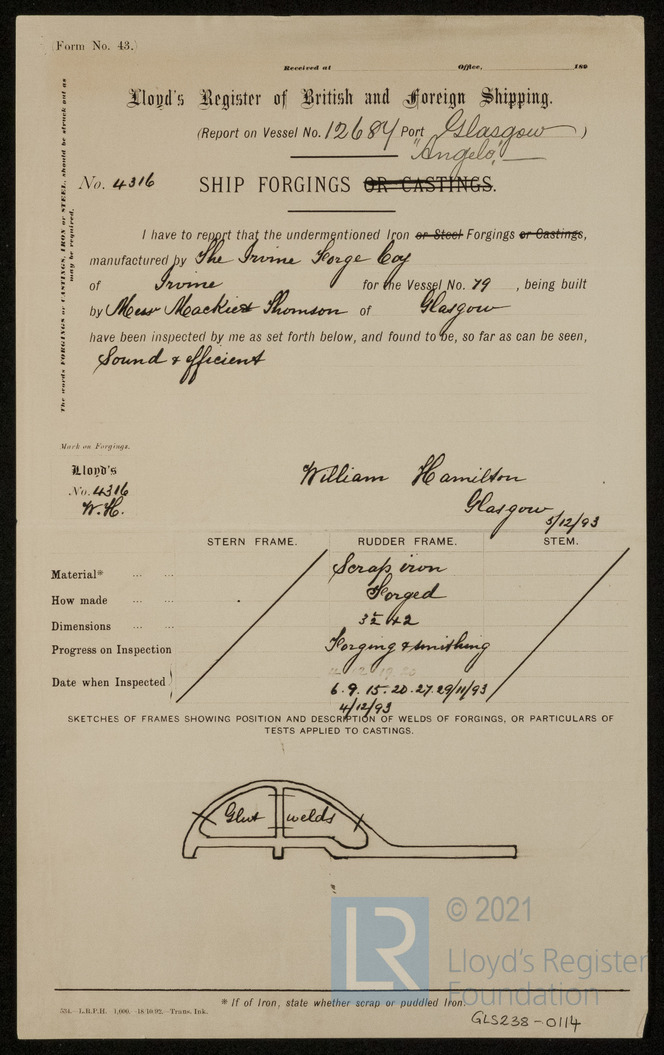 (Form No. 43.)
Received at Office, 189
Lloyd's Register of British and Foreign Shipping.
(Report on Vessel No. 12684 Port Glasgow )
"Angelo"
No. 4316 SHIP FORGINGS OR CASTINGS.
The words FORGINGS or CASTINGS, IRON or STEEL, should be struck out as
may be required.
I have to report that the undermentioned Iron or Steel Forgings or Castings,
manufactured by The Irvine Forge Coy
of Irvine for the Vessel No. 79 , being built
by Messrs Mackie & Thomson of Glasgow
have been inspected by me as set forth below, and found to be, so far as can be seen,
Sound & efficient
Mark on Forgings.
Lloyd's
No. 4316
W.H.
William Hamilton
Glasgow 5/12/93
STERN FRAME. RUDDER FRAME. STEM.
Material* ... ... Scrap iron
How made ... ... Forged
Dimensions ... ...
Progress on Inspection Forging & finishing
Date when Inspected 6. 9. 15. 20. 27. 29/11/93
4/12/93
SKETCHES OF FRAMES SHOWING POSITION AND DESCRIPTION OF WELDS OF FORGINGS, OR PARTICULARS OF
TESTS APPLIED TO CASTINGS.
Glut welds
LR
© 2021
Lloyd's Register
Foundation
* If of Iron, state whether scrap or puddled Iron.
534.—L.R.P.H.—1,000.—18/10/92.—Trans. Ink.
GLS238-0114